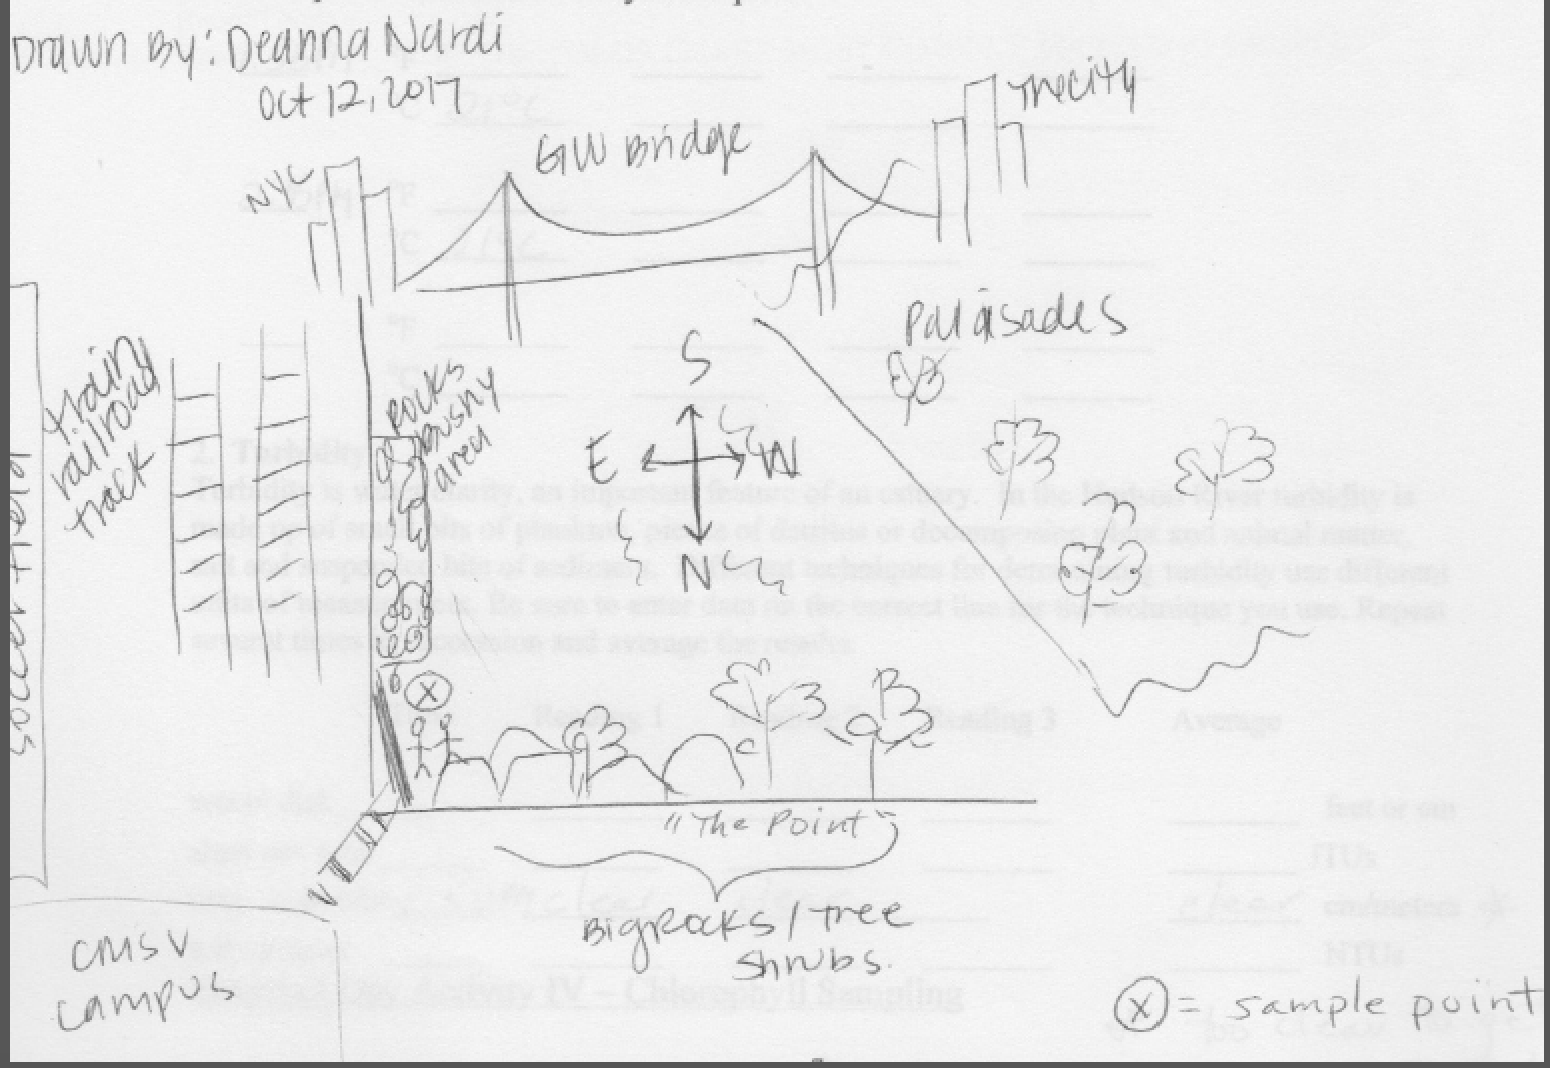 Drawn By: Deanna Nardi
Oct 12, 2017
The city
GW Bridge
NYC
Palaisades
S
train
railroad
track
rocks
bushy
area
E W
N
soccer field
X
"The Point"
Big Rocks / Tree
Shrubs.
CMSV
campus
X = sample point
2. Turbidity
Turbidity is water clarity, an important feature of an estuary. In the Hudson River turbidity is
made up of small bits of plankton, pieces of detritus or decomposing plant and animal matter,
silt and suspended bits of sediment. Different techniques for determining turbidity use different
units of measurement. Be sure to enter data on the correct line for the technique you use. Repeat
several times in succession and average the results.
Reading 1 Reading 3 Average
feet or cm
JTUs
clear clear cm/meters
NTUs
Activity IV – Chlorophyll Sampling